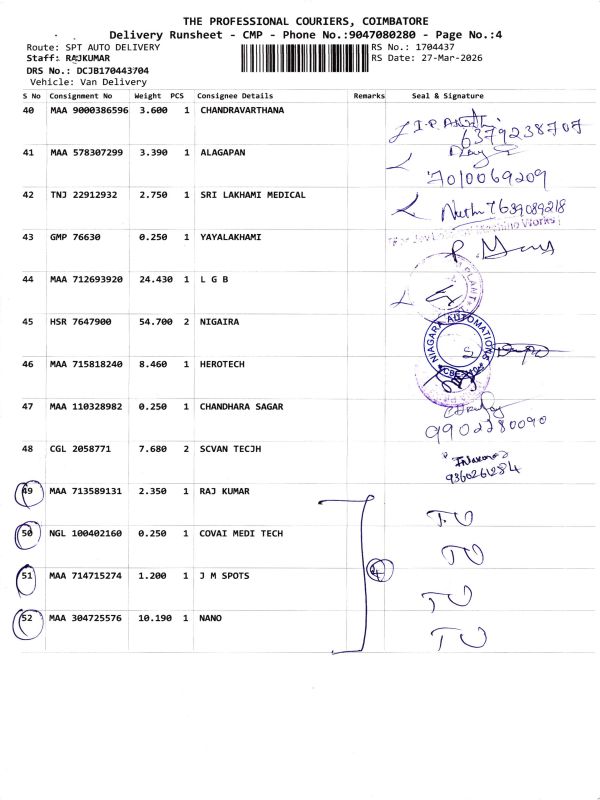 THE PROFESSIONAL COURIERS, COIMBATORE
Delivery Runsheet - CMP - Phone No.:9047080280 - Page No.:4
Route: SPT AUTO DELIVERY RS No.: 1704437
Staff: RAJKUMAR RS Date: 27-Mar-2026
DRS No.: DCJB170443704
Vehicle: Van Delivery
S No Consignment No Weight PCS Consignee Details Remarks Seal & Signature
40 MAA 9000386596 3.600 1 CHANDRAVARTHANA
6379238707
41 MAA 578307299 3.390 1 ALAGAPAN
7010069209
42 TNJ 22912932 2.750 1 SRI LAKHAMI MEDICAL
Nuthi 7639089218
43 GMP 76630 0.250 1 YAYALAKHAMI
44 MAA 712693920 24.430 1 L G B
45 HSR 7647900 54.700 2 NIGAIRA
NIAGARA AUTOMATIONS
46 MAA 715818240 8.460 1 HEROTECH
47 MAA 110328982 0.250 1 CHANDHARA SAGAR
9902280090
48 CGL 2058771 7.680 2 SCVAN TECJH
9360261284
49 MAA 713589131 2.350 1 RAJ KUMAR TU
50 NGL 100402160 0.250 1 COVAI MEDI TECH TU
51 MAA 714715274 1.200 1 J M SPOTS 4 TU
52 MAA 304725576 10.190 1 NANO TU